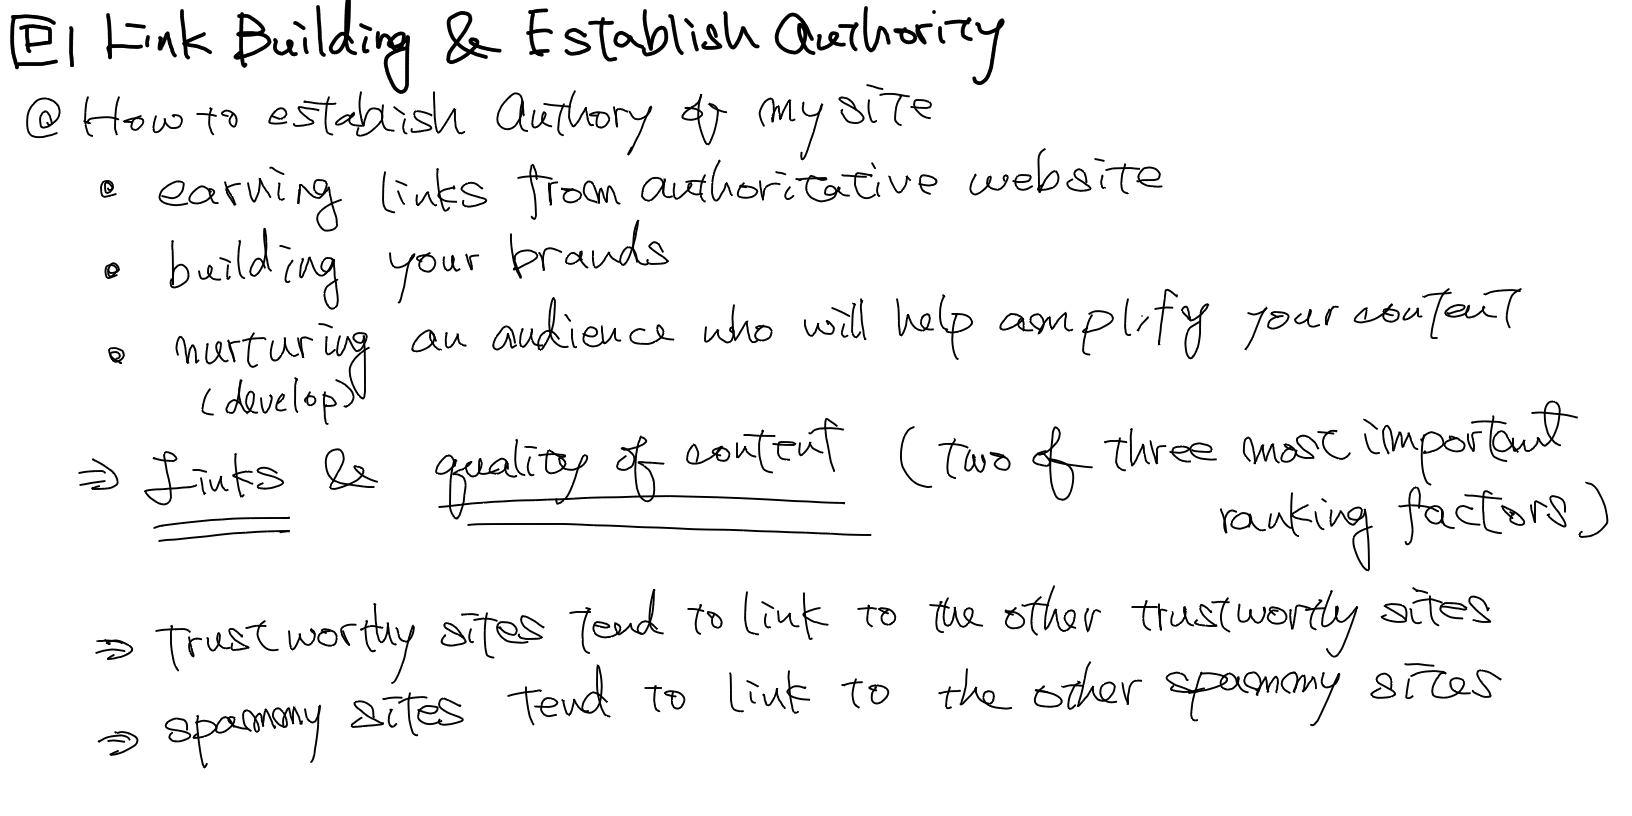 回1 Link Building & Establish Authority
@ How to establish Authory of my site
• earning links from authoritative website
• building your brands
• nurturing an audience who will help amplify your content
(develop)
⇒ Links & quality of content (two of three most important
ranking factors)
⇒ Trustworthy sites tend to link to the other trustworthy sites
⇒ spammy sites tend to link to the other spammy sites